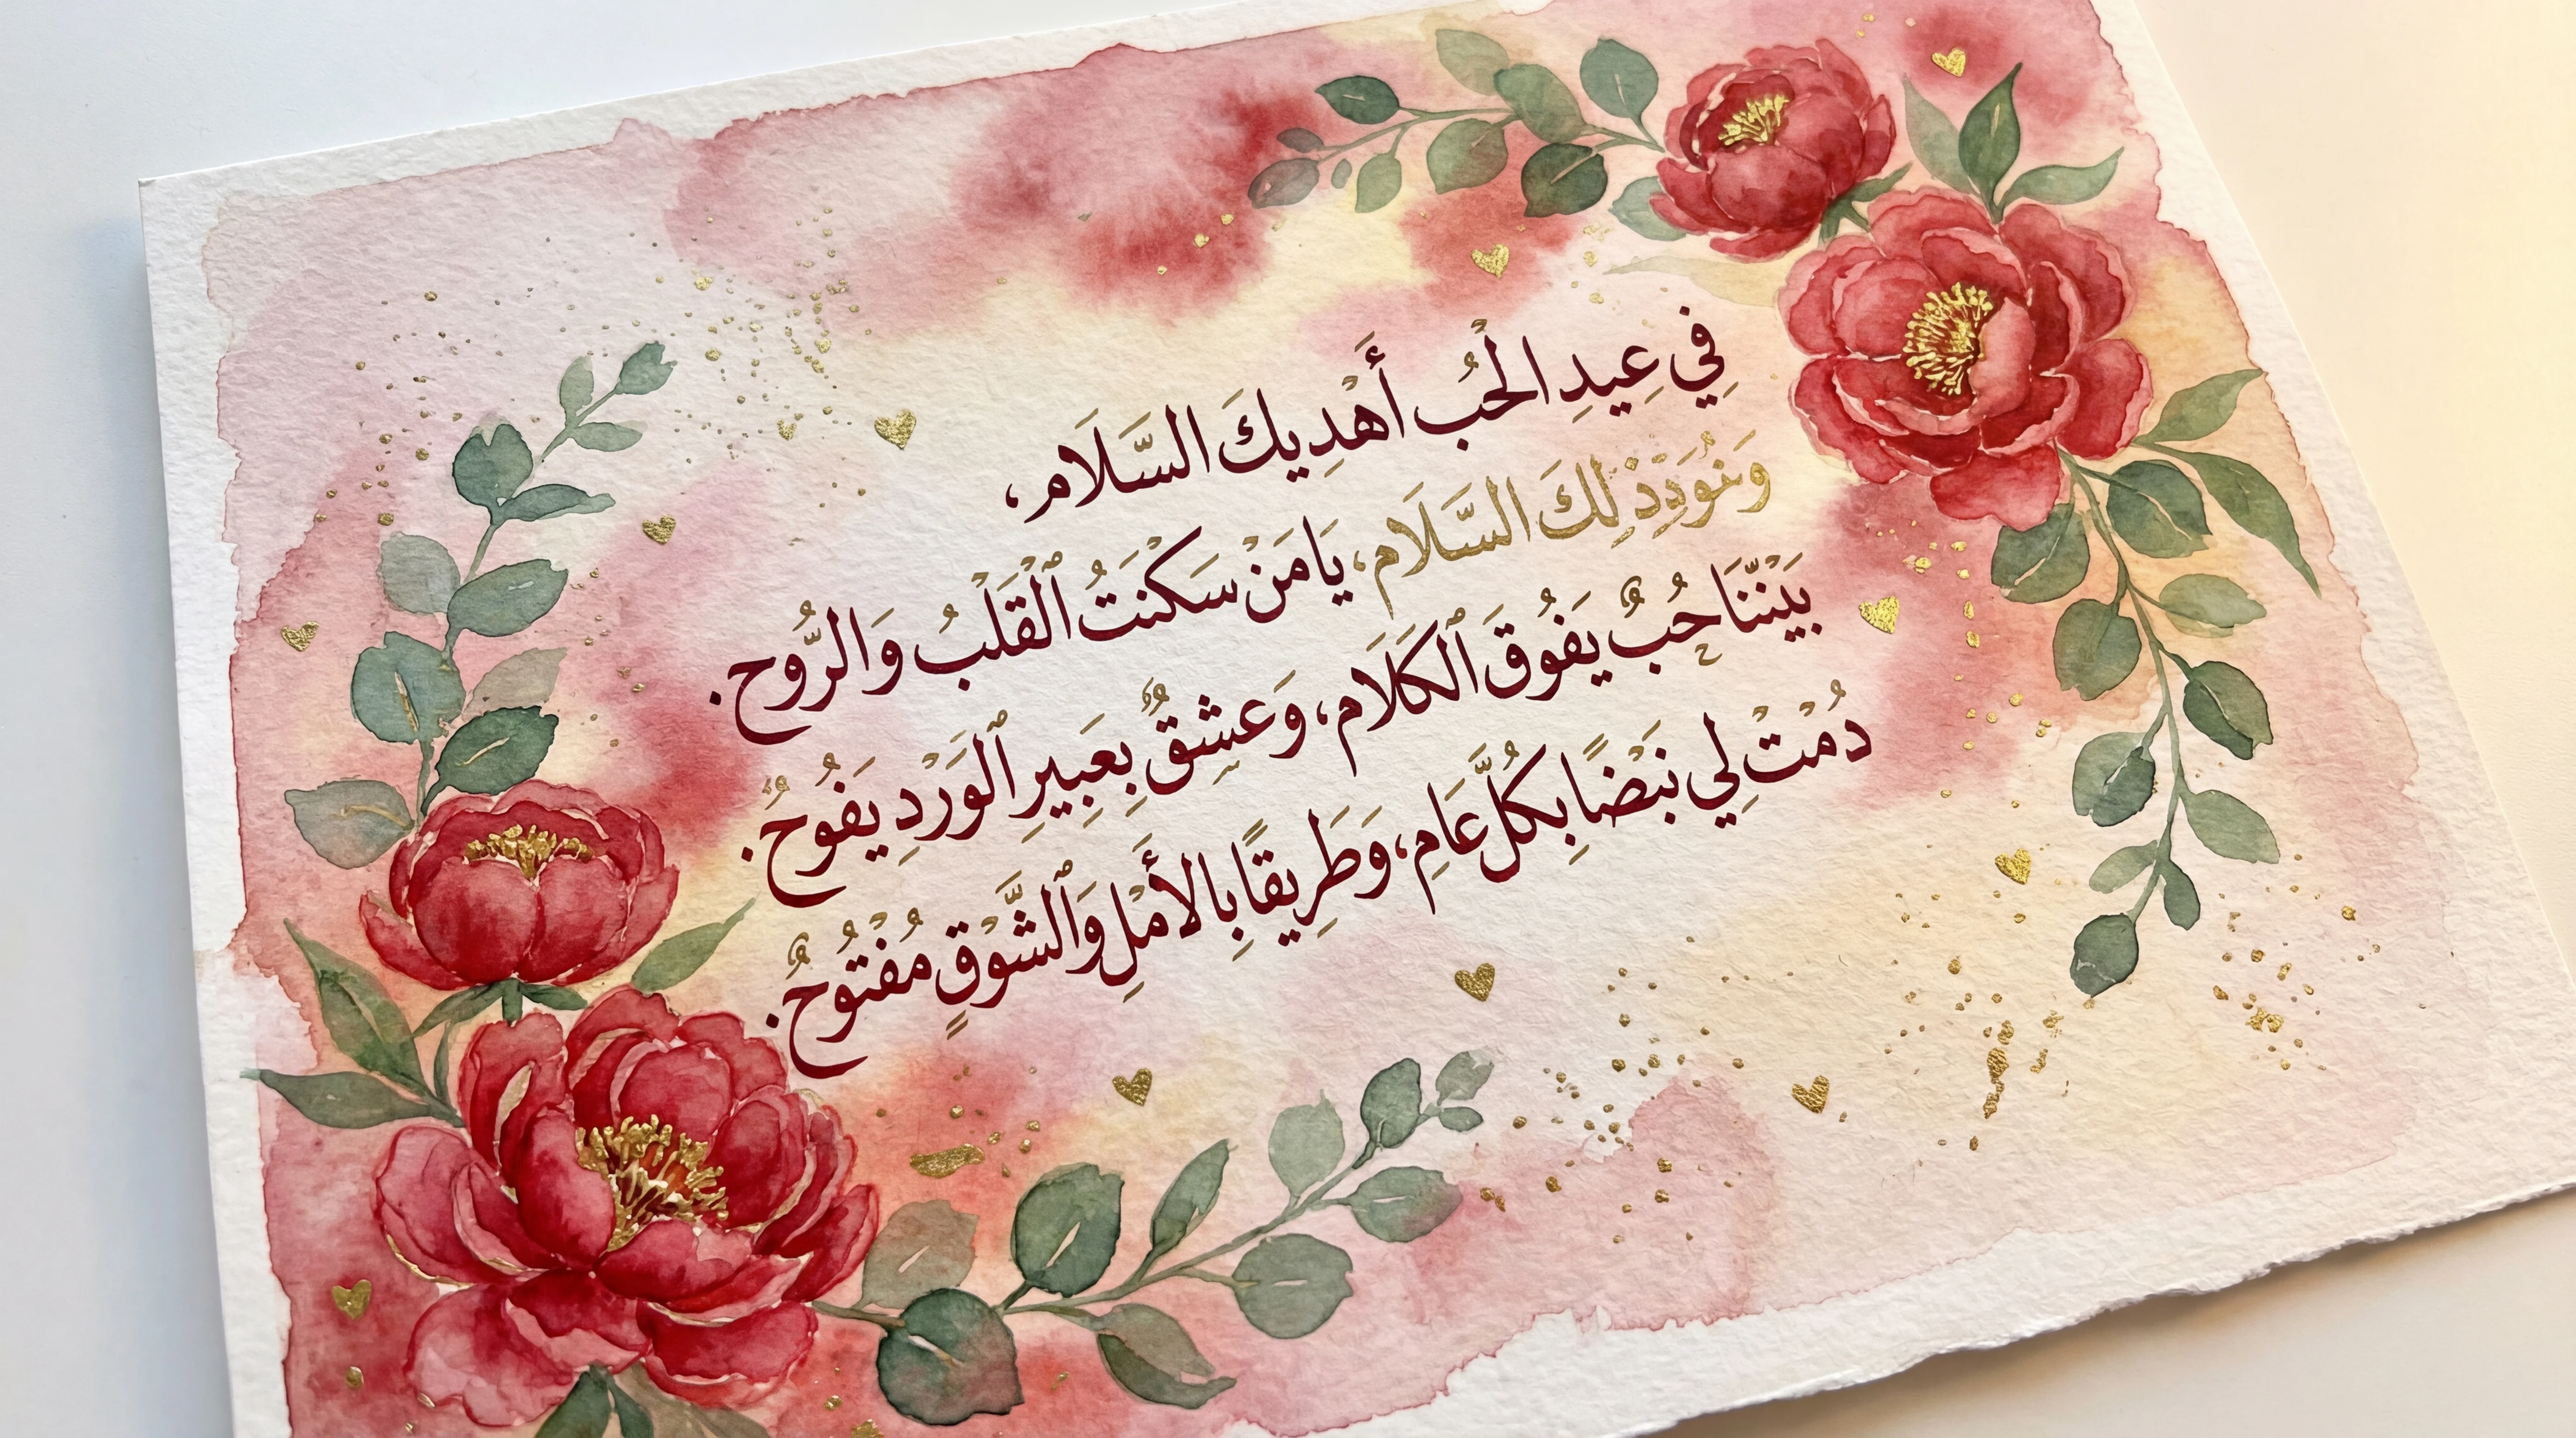 فِي عِيدِ الْحُب أَهْدِيكَ السَّلَام،
لِكَ السَّلَام، يَا مَنْ سَكَنَتُ ٱلْقَلْبُ وَالرُّوح.
بَيْنَنَا حُبٌ يَفُوقَ ٱلْكَلَام، وَعِشِقٌ بِعَبِيرِ ٱلْوَرْدِ يَفُوحُ.
دُمْتْ لِي نَبْضًا بِكُلِّ عَامِ، وَطَرِيقًا بِالأَمْلِ وَٱلشَّوْقٍ مُفْتُوحٌ.